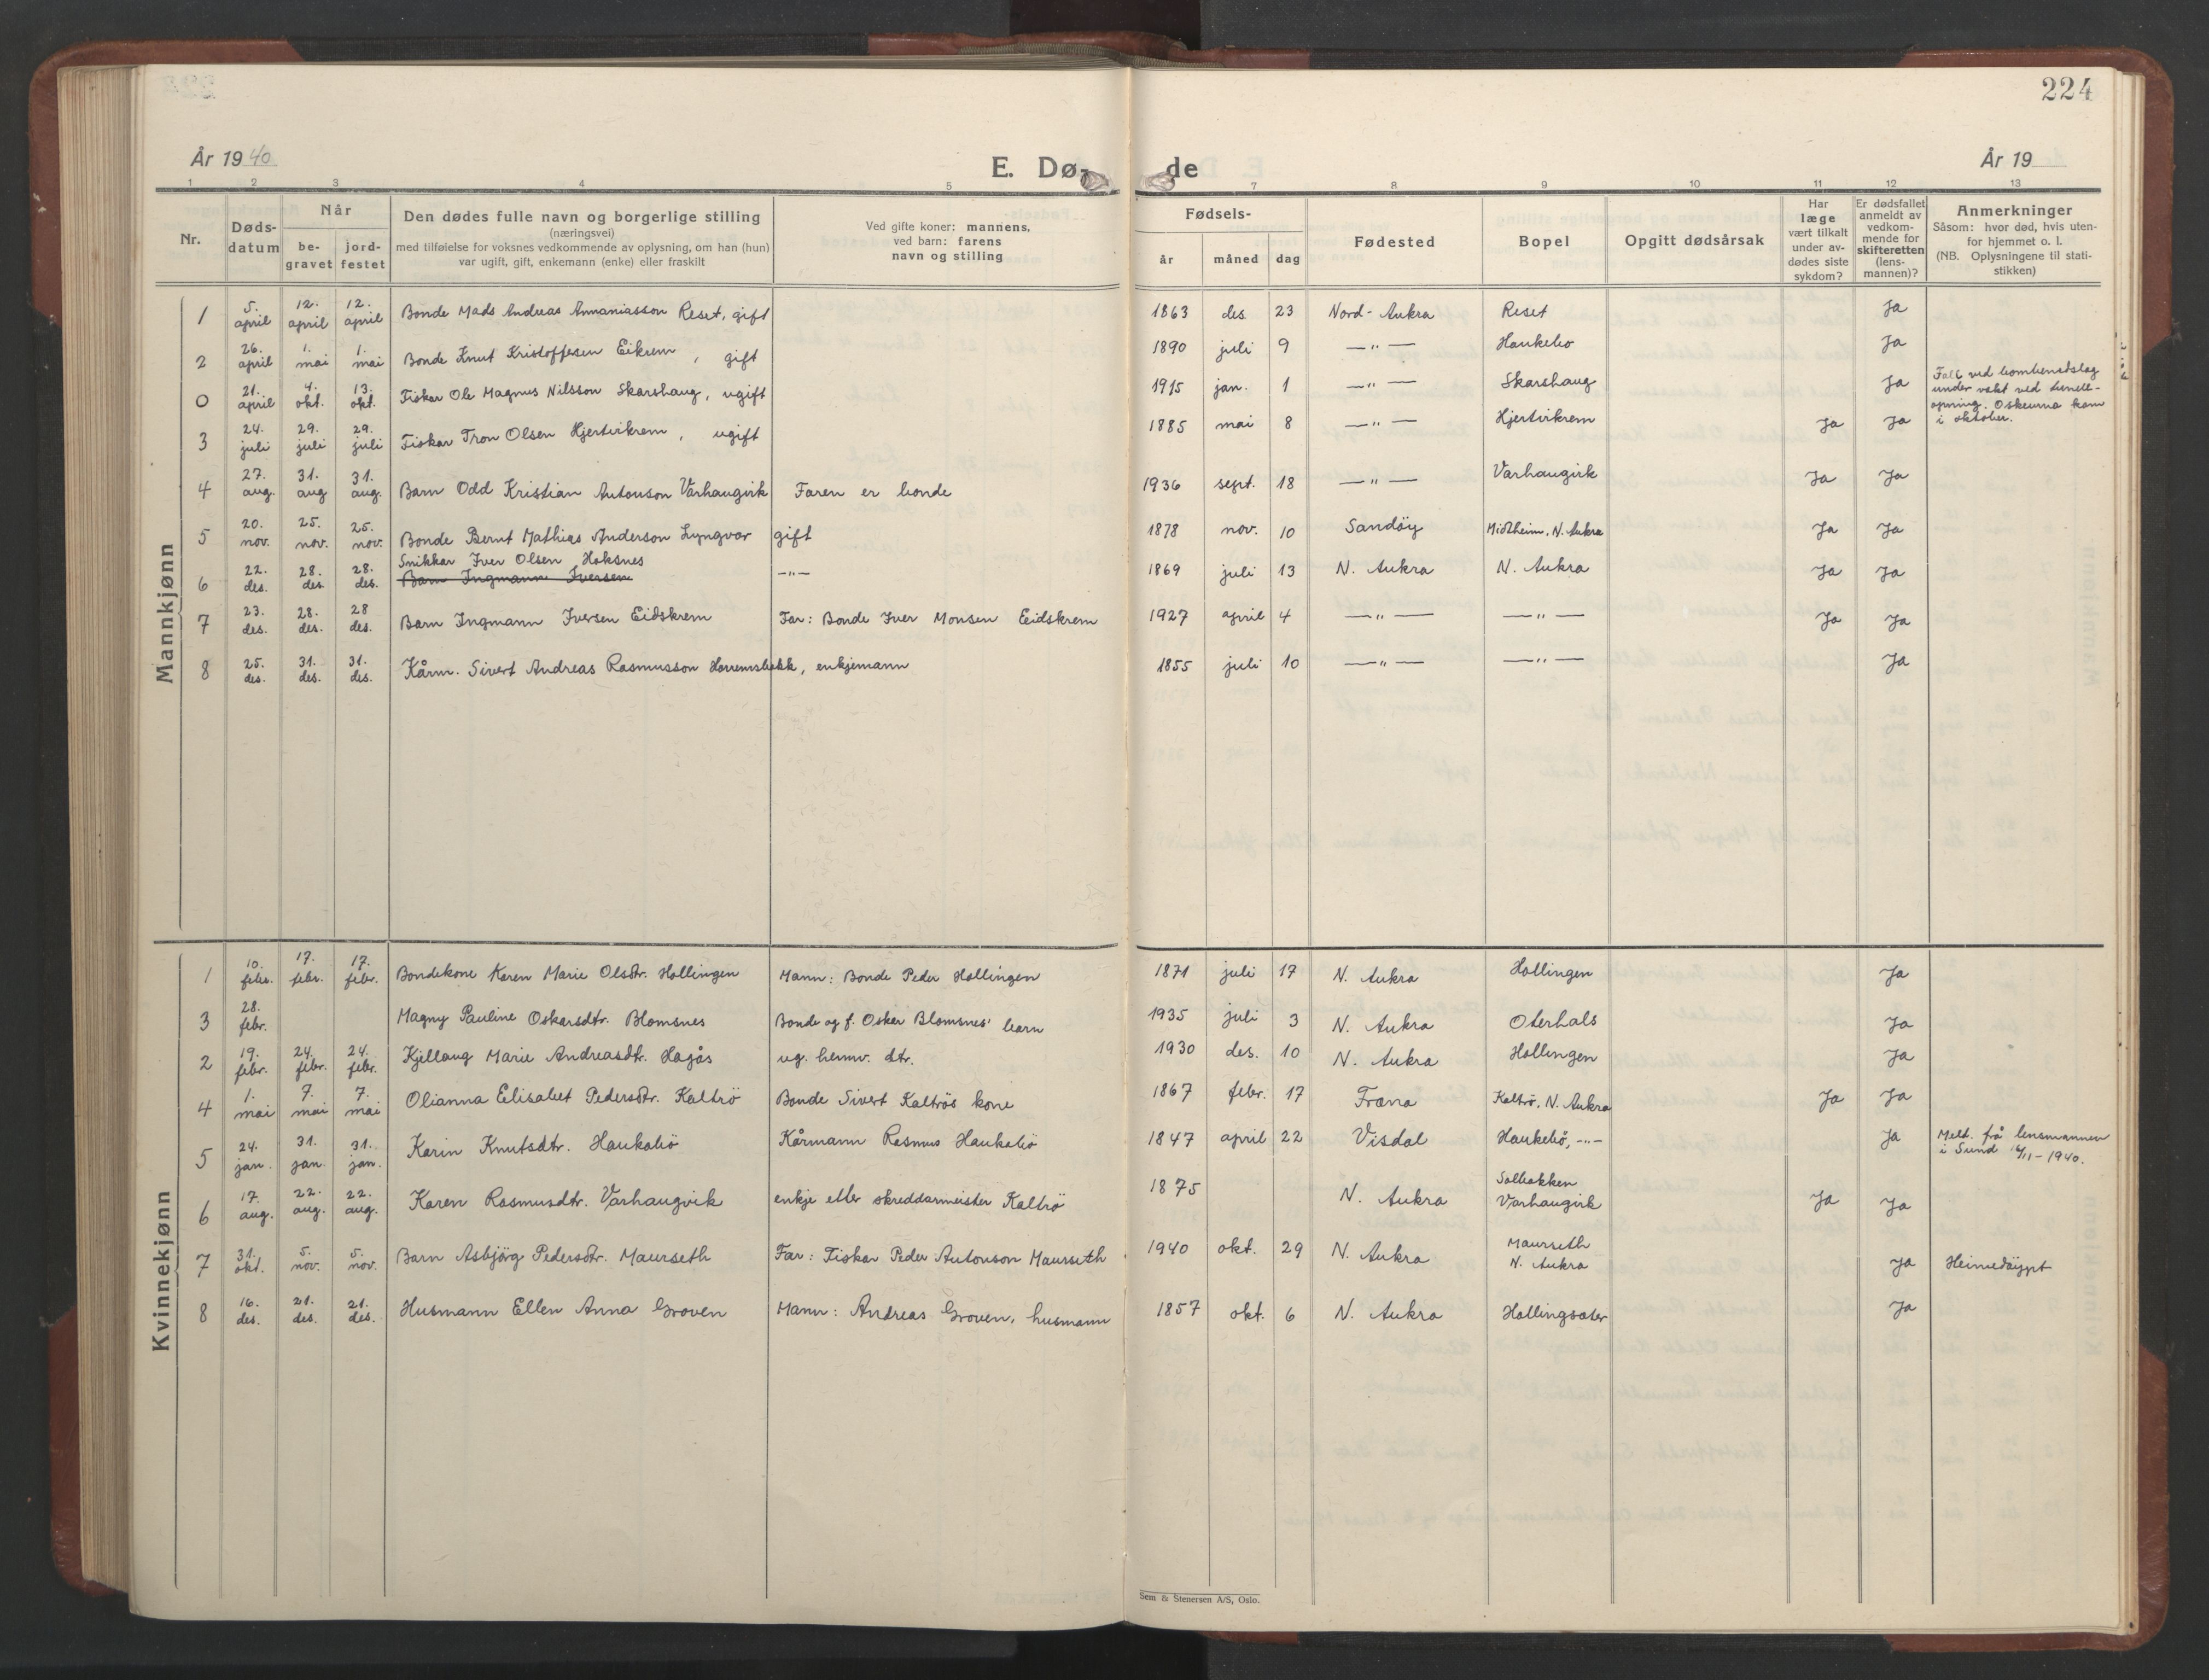 224
År 1940
E. Dø-
de
År 19
1 2 3 4 5 7 8 9 10 11 12 13
Nr.
Døds-
datum
Når
be-
gravet
jord-
festet
Den dødes fulle navn og borgerlige stilling
(næringsvei)
med tilføielse for voksnes vedkommende av oplysning, om han (hun)
var ugift, gift, enkemann (enke) eller fraskilt
Ved gifte koner: mannens,
ved barn: farens
navn og stilling
Fødsels-
år måned dag
Fødested
Bopel
Opgitt dødsårsak
Har
læge
vært tilkalt
under av-
dødes siste
sykdom?
Er dødsfallet
anmeldt av
vedkom-
mende for
skifteretten
(lens-
mannen)?
Anmerkninger
Såsom: hvor død, hvis uten-
for hjemmet o. l.
(NB. Oplysningene til stati-
stikken)
Mannkjønn
1 5. april 12. april 12. april Bonde Mads Andreas Annaniasson Reset, gift 1863 des. 23 Nord-Aukra Reset Ja
2 26. april 1. mai 1. mai Bonde Knut Kristoffersen Eikrem, gift 1890 juli 9 —"— Haukebø Ja
0 21. april 4. okt. 13. okt. Fiskar Ole Magnus Nilsson Skarshaug, ugift 1915 jan. 1 —"— Skarshaug Ja Fall ved bombenedslag
under vakt ved
opning. Oskeurna kom
i oktober.
3 24. juli 29. juli 29. juli Fiskar Tron Olsen Hjertvikrem, ugift 1885 mai 8 —"— Hjertvikrem Ja Ja
4 27. aug. 31. aug 31. aug. Barn Odd Kristian Antonson Varhaugvik Faren er bonde 1936 sept. 18 —"— Varhaugvik Ja Ja
5 20. nov. 25. nov. 25. nov. Bonde Bernt Mathias Anderson Lyngvær gift 1878 nov. 10 Sandöy Midtheim, N. Aukra Ja Ja
Snikkar Iver Olsen Hoksnes
6 22. des. 28. des. 28. des. Barn Ingmann Iversen —"— 1869 juli 13 N. Aukra N. Aukra Ja Ja
7 23. des. 28. des. 28 des. Barn Ingmann Iversen Eidskrem Far: Bonde Iver Monsen Eidskrem 1927 april 4 —"— —"— Ja Ja
8 25. des. 31. des. 31. des. Kårm. Sivert Andreas Rasmusson Horremsbakk, enkjemann 1855 juli 10 —"— —"— Ja
Kvinnekjønn
1 10. febr. 17. febr. 17. febr. Bondekone Karen Marie Olsdtr. Hollingen Mann: Bonde Peder Hollingen 1871 juli 17 N. Aukra Hollingen Ja
3 28. febr. Magny Pauline Oskarsdtr. Blomsnes Bonde og f. Oskar Blomsnes' barn 1935 juli 3 N. Aukra Oterhals Ja
2 19. febr. 24. febr. 24. febr. Kjellaug Marie Andreasdtr. Hagås ug. hemv. dtr. 1930 des. 10 N. Aukra Hollingen Ja
4 1. mai 7. mai 7. mai Olianna Elisabet Pedersdtr. Kaltrö Bonde Sivert Kaltrös kone 1867 febr. 17 Fræna Kaltrö, N. Aukra Ja Ja
5 24. jan. 31. jan. 31. jan. Karin Knutsdtr. Haukabö Kårmann Rasmus Haukabö 1847 april 22 Visdal Haukebö, -"- Ja Meld. frå lensmannen
i Sund 16/11-1940.
6 17. aug. 22. aug. 22. aug. Karen Rasmusdtr. Varhaugvik enkje etter skreddarmeister Kaltrö 1875 N. Aukra Solbakken
Varhaugvik Ja Ja
7 31. okt. 5. nov. 5. nov. Barn Asbjörg Pedersdtr. Maurseth Far: Fiskar Peder Antonson Maurseth 1940 okt. 29 N. Aukra Maurseth
N. Aukra Ja Heimedöypt
8 16. des. 21. des. 21. des. Husmann Ellen Anna Groven Mann: Andreas Groven, husmann 1857 okt. 6 N. Aukra Hollingsæter Ja
Sem & Stenersen A/S, Oslo.